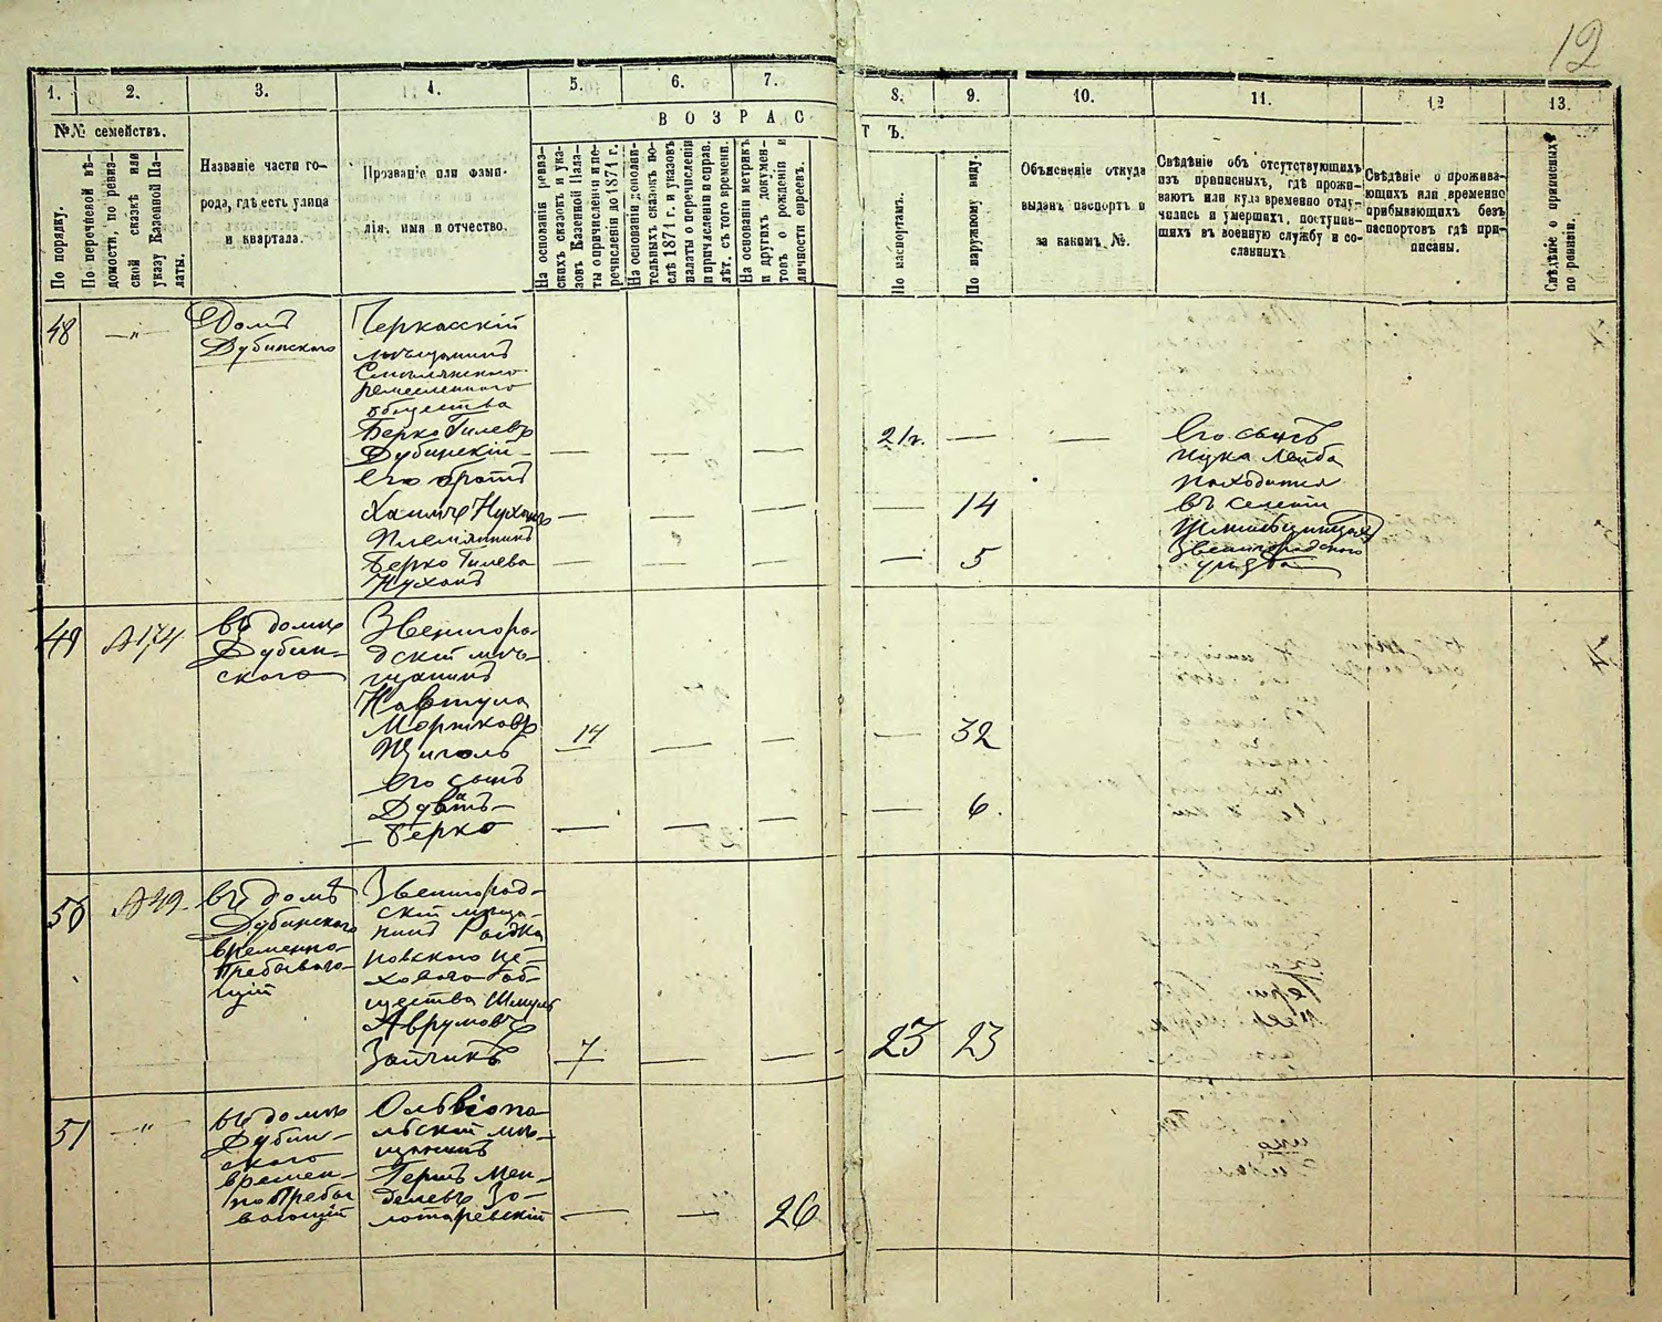 12
1. 2. 3. 4. 5. 6. 7. 8. 9. 10. 11. 12 13.
№№ семействъ.
В О З Р А С Т Ъ.
По порядку.
По перечневой вѣ-
домости, по ревиз-
ской сказкѣ или
указу Казенной Па-
латы.
Названіе части го-
рода, гдѣ есть улица
и квартала.
Прозваніе или фами-
лія, имя и отчество.
На основаніи ревиз-
скихъ сказокъ и ука-
зовъ Казенной Пала-
ты о причисленіи и пе-
речисленіи до 1871 г.
На основаніи дополни-
тельныхъ сказокъ по-
слѣ 1871 г. и указовъ
палаты о перечисленіи
и причисленіи и справ.
лѣт. съ того времени.
На основаніи метрикъ
и другихъ докумен-
товъ о рожденіи и
личности евреевъ.
По паспортамъ.
По наружному виду.
Объясненіе откуда
выданъ паспортъ и
за какимъ №.
Свѣдѣніе объ отсутствующихъ
изъ приписныхъ, гдѣ прожи-
ваютъ или куда временно отлу-
чились и умершихъ, поступив-
шихъ въ военную службу и со-
сланныхъ
Свѣдѣніе о прожива-
ющихъ или временно
прибывающихъ безъ
паспортовъ гдѣ при-
писаны.
Свѣдѣніе о приписныхъ
по ревизіи.
48 —"— Домъ
Дубинскаго
Черкасскій
мѣщанинъ
Смѣлянскаго
ремесленнаго
общества
Берко Гилевъ
Дубинскій — — — 21 г. — —
его братъ
Хаимъ Нухимъ — — — — 14
Племянникъ
Берко Гилева — — — — 5
Нухимъ
Его сынъ
Нука Лейба
находится
въ селеніи
Звенигородскаго
уѣзда
49 №174 въ домѣ
Дубин-
скаго
Звенигоро-
дскій мѣ-
щанинъ
Нафтула
Мортковъ
Щиголь 14 — — — 32
его сынъ
Дувидъ —
— Берко — — — — 6.
50 №49 въ домѣ
Дубинскаго
временно-
пребываю-
щій
Звенигород-
скій мѣща-
нинъ
новскаго це-
ховаго об-
щества Шмуль
Аврумовъ
Зайчикъ 7 — — 23 23
51 —"— въ домѣ
Дубин-
скаго
времен-
но Пребы
вающій
Ольвіопо-
льскій мѣ-
щанинъ
Гершъ Мен-
делевъ Зо-
лотаревскій — — 26